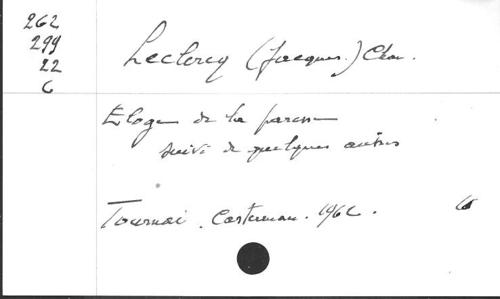 262
299
22
6
Leclercq (Jacques) Chan.
Eloge de la paresse
suivi de quelques autres
Tournai. Casterman. 1962.